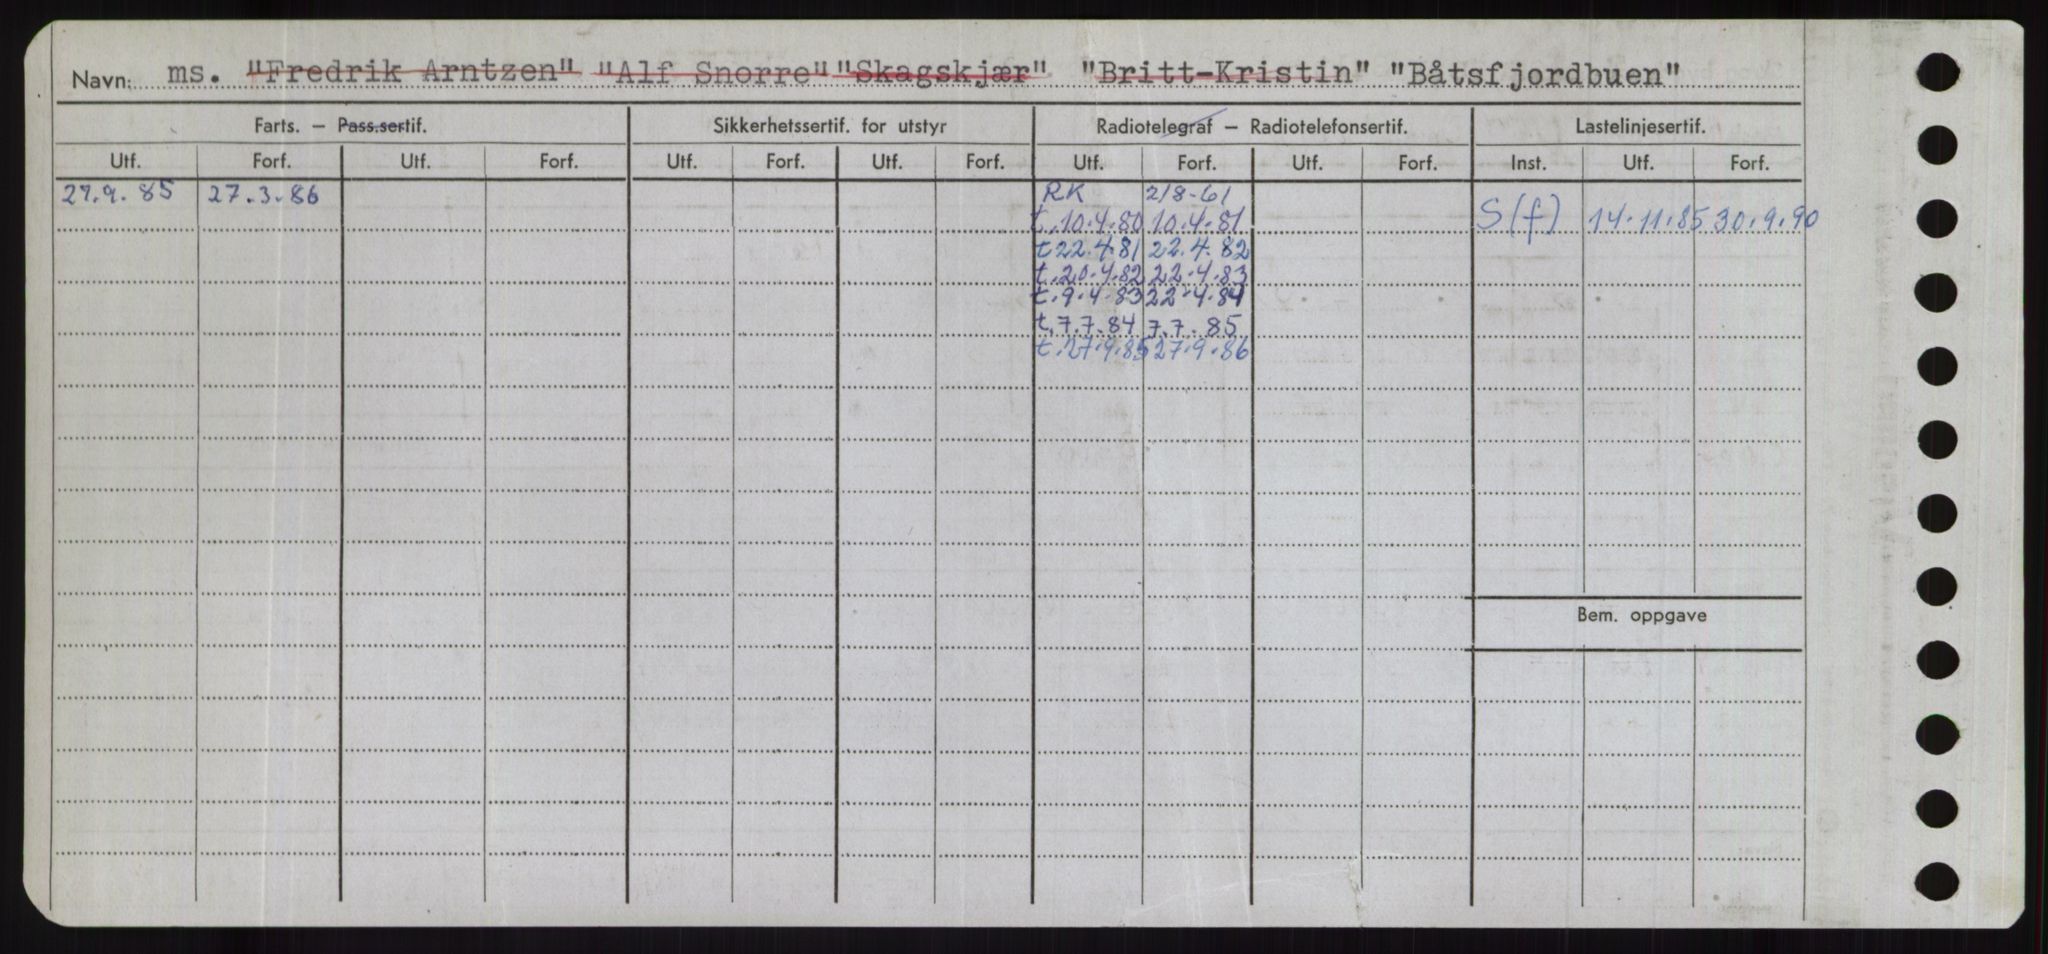 Navn: ms. "Fredrik Arntzen" "Alf Snorre" "Skagskjær" "Britt-Kristin" "Båtsfjordbuen"
Farts. – Pass.sertif. Sikkerhetssertif. for utstyr Radiotelegraf – Radiotelefonsertif. Lastelinjesertif.
Utf. Forf. Utf. Forf. Utf. Forf. Utf. Forf. Utf. Forf. Utf. Forf. Inst. Utf. Forf.
27.9.85 27.3.86 RK 2/8-61
t.10.4.80 10.4.81 S(f) 14.11.85 30.9.90
t 22.4.81 22.4.82
t.20.4.82 22.4.83
t.9.4.83 22.4.84
t.7.7.84 7.7.85
t.27.9.85 27.9.86
Bem. oppgave